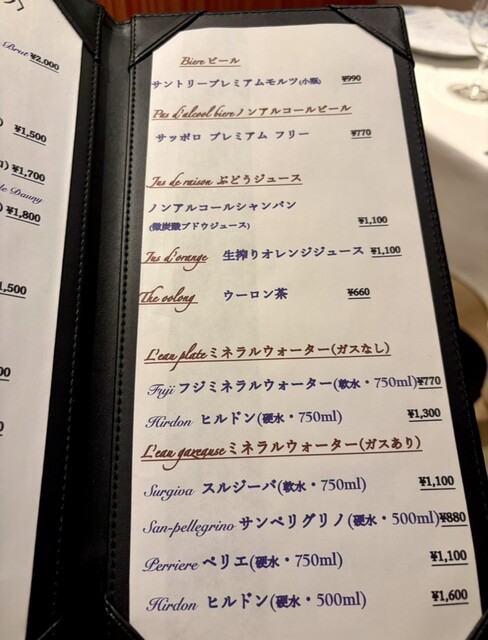 Brut ¥2,000
¥1,500
¥1,700
de Dauny
¥1,800
,500
Biere ビール
サントリープレミアムモルツ(小瓶) ¥990
Pas d'alcool biere ノンアルコールビール
サッポロ プレミアム フリー ¥770
Jus de raison ぶどうジュース
ノンアルコールシャンパン
(微炭酸ブドウジュース) ¥1,100
Jus d'orange 生搾りオレンジジュース ¥1,100
The oolong ウーロン茶 ¥660
L'eau plate ミネラルウォーター(ガスなし)
Fuji フジミネラルウォーター(軟水・750ml) ¥770
Hirdon ヒルドン(硬水・750ml) ¥1,300
L'eau gazeguse ミネラルウォーター(ガスあり)
Surgiva スルジーバ(軟水・750ml) ¥1,100
San-pellegrino サンペリグリノ(硬水・500ml) ¥880
Perriere ペリエ(硬水・750ml) ¥1,100
Hirdon ヒルドン(硬水・500ml) ¥1,600